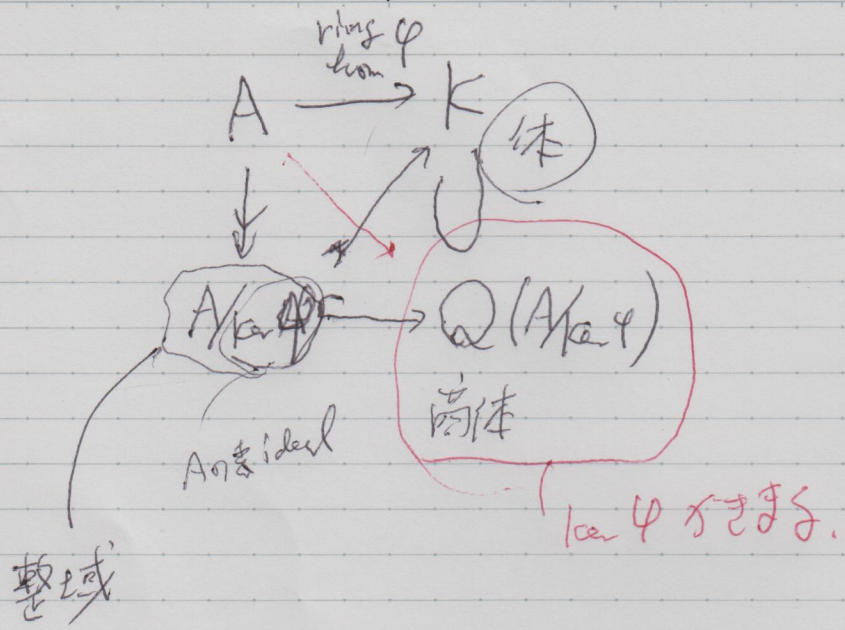 ring φ
hom
A → K
体
A/ker φ → Q(A/ker φ)
商体
Aの素ideal
ker φ がきまる.
整域